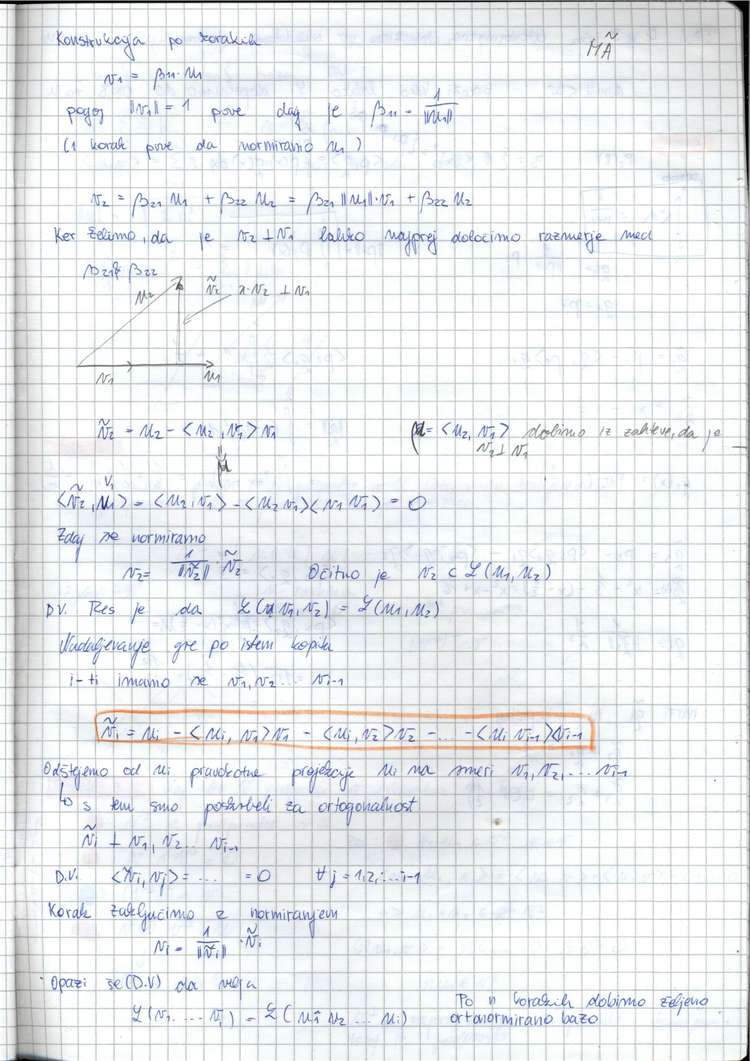 Konstrukcija po korakih
MÃ
v₁ = β₁₁·u₁
pogoj ‖v₁‖ = 1 pove daj je β₁₁ = 1/‖u₁‖
(1 korak pove da normiramo u₁)
v₂ = β₂₁ u₁ + β₂₂ u₂ = β₂₁ ‖u₁‖·v₁ + β₂₂ u₂
Ker želimo, da je v₂ ⊥ v₁ lahko najprej določimo razmerje med
β₂₁ & β₂₂
u₂ ṽ₂ x·v₂ ⊥ v₁
v₁ u₁
ṽ₂ = u₂ - <u₂, v₁> v₁
= <u₂, v₁> dobimo iz zahteve, da je
v₂ ⊥ v₁
<ṽ₂, v₁> = <u₂, v₁> - <u₂ v₁><v₁ v₁> = 0
Zdaj še normiramo
v₂ = 1/‖ṽ₂‖ · ṽ₂ Očitno je v₂ ⊂ ℒ(u₁, u₂)
D.V. Res je da ℒ(v₁, v₂) = ℒ(u₁, u₂)
Nadaljevanje gre po istem kopitu
i-ti imamo že v₁, v₂ ... vᵢ₋₁
ṽᵢ = uᵢ - <uᵢ, v₁> v₁ - <uᵢ, v₂> v₂ - ... - <uᵢ vᵢ₋₁> vᵢ₋₁
Odštejemo od uᵢ pravokotne projekcije uᵢ na smeri v₁, v₂, ... vᵢ₋₁
↳ s tem smo poskrbeli za ortogonalnost
ṽᵢ ⊥ v₁, v₂ ... vᵢ₋₁
D.V. <ṽᵢ, vⱼ> = .... = 0 ∀ j = 1, 2, ... i-1
Korak zaključimo z normiranjem
vᵢ = 1/‖ṽᵢ‖ · ṽᵢ
Opazi še (D.V) da velja
ℒ(v₁ .... vᵢ) = ℒ(u₁ u₂ ... uᵢ)
Po n korakih dobimo željeno
ortonormirano bazo